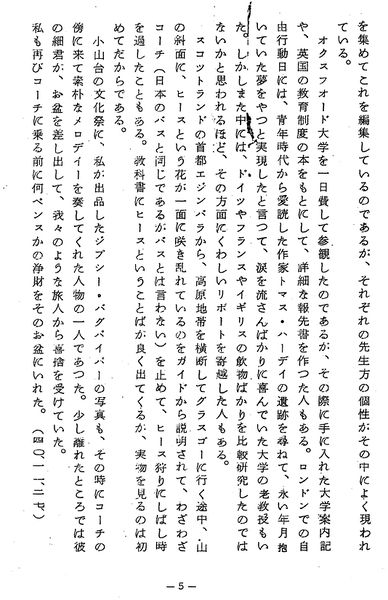 を集めてこれを編集しているのであるが、それぞれの先生方の個性がその中によく現われ
ている。
オクスフォード大学を一日費して参観したのであるが、その際に手に入れた大学案内記
や、英国の教育制度の本をもとにして、詳細な報告書を作つた人もある。ロンドンでの自
由行動日には、青年時代から愛読した作家トマス・ハーデイの遺跡を尋ねて、永い年月抱
いていた夢をやつと実現したと言つて、涙を流さんばかりに喜んでいた大学の老教授もい
た。しかしまた中には、ドイツやフランスやイギリスの飲物ばかりを比較研究したのでは
ないかと思われるほど、その方面にくわしいリポートを寄越した人もある。
スコットランドの首都エジンバラから、高原地帯を横断してグラスゴーに行く途中、山
の斜面に、ヒースという花が一面に咲き乱れているのをガイドから説明されて、わざわざ
コーチ(日本のバスと同じであるがバスとは言わない)を止めて、ヒース狩りにしばし時
を過したこともある。教科書にヒースということばが良く出てくるが、実物を見るのは初
めてだからである。
小山台の文化祭に、私が出品したジプシー・バグパイパーの写真も、その時にコーチの
傍に来て素朴なメロデイーを奏してくれた人物の一人であつた。少し離れたところでは彼
の細君が、お盆を差し出して、我々のような旅人から喜捨を受けていた。
私も再びコーチに乗る前に何ペンスかの浄財をそのお盆にいれた。(四〇・一一・二七)
— 5 —